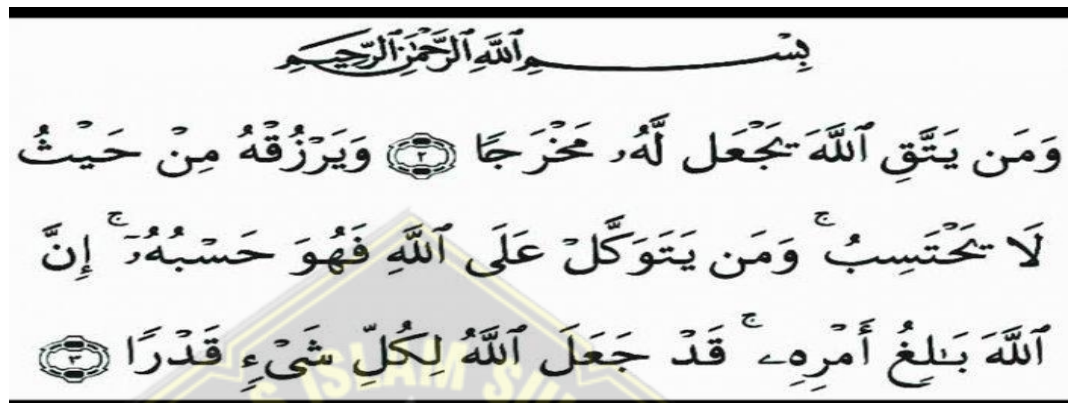 بِسْمِ ٱللَّهِ ٱلرَّحْمَٰنِ ٱلرَّحِيمِ
وَمَن يَتَّقِ ٱللَّهَ يَجْعَل لَّهُۥ مَخْرَجًا ٢ وَيَرْزُقْهُ مِنْ حَيْثُ
لَا يَحْتَسِبُ ۚ وَمَن يَتَوَكَّلْ عَلَى ٱللَّهِ فَهُوَ حَسْبُهُۥٓ ۚ إِنَّ
ٱللَّهَ بَٰلِغُ أَمْرِهِۦ ۚ قَدْ جَعَلَ ٱللَّهُ لِكُلِّ شَىْءٍ قَدْرًا ٣
ISLAM